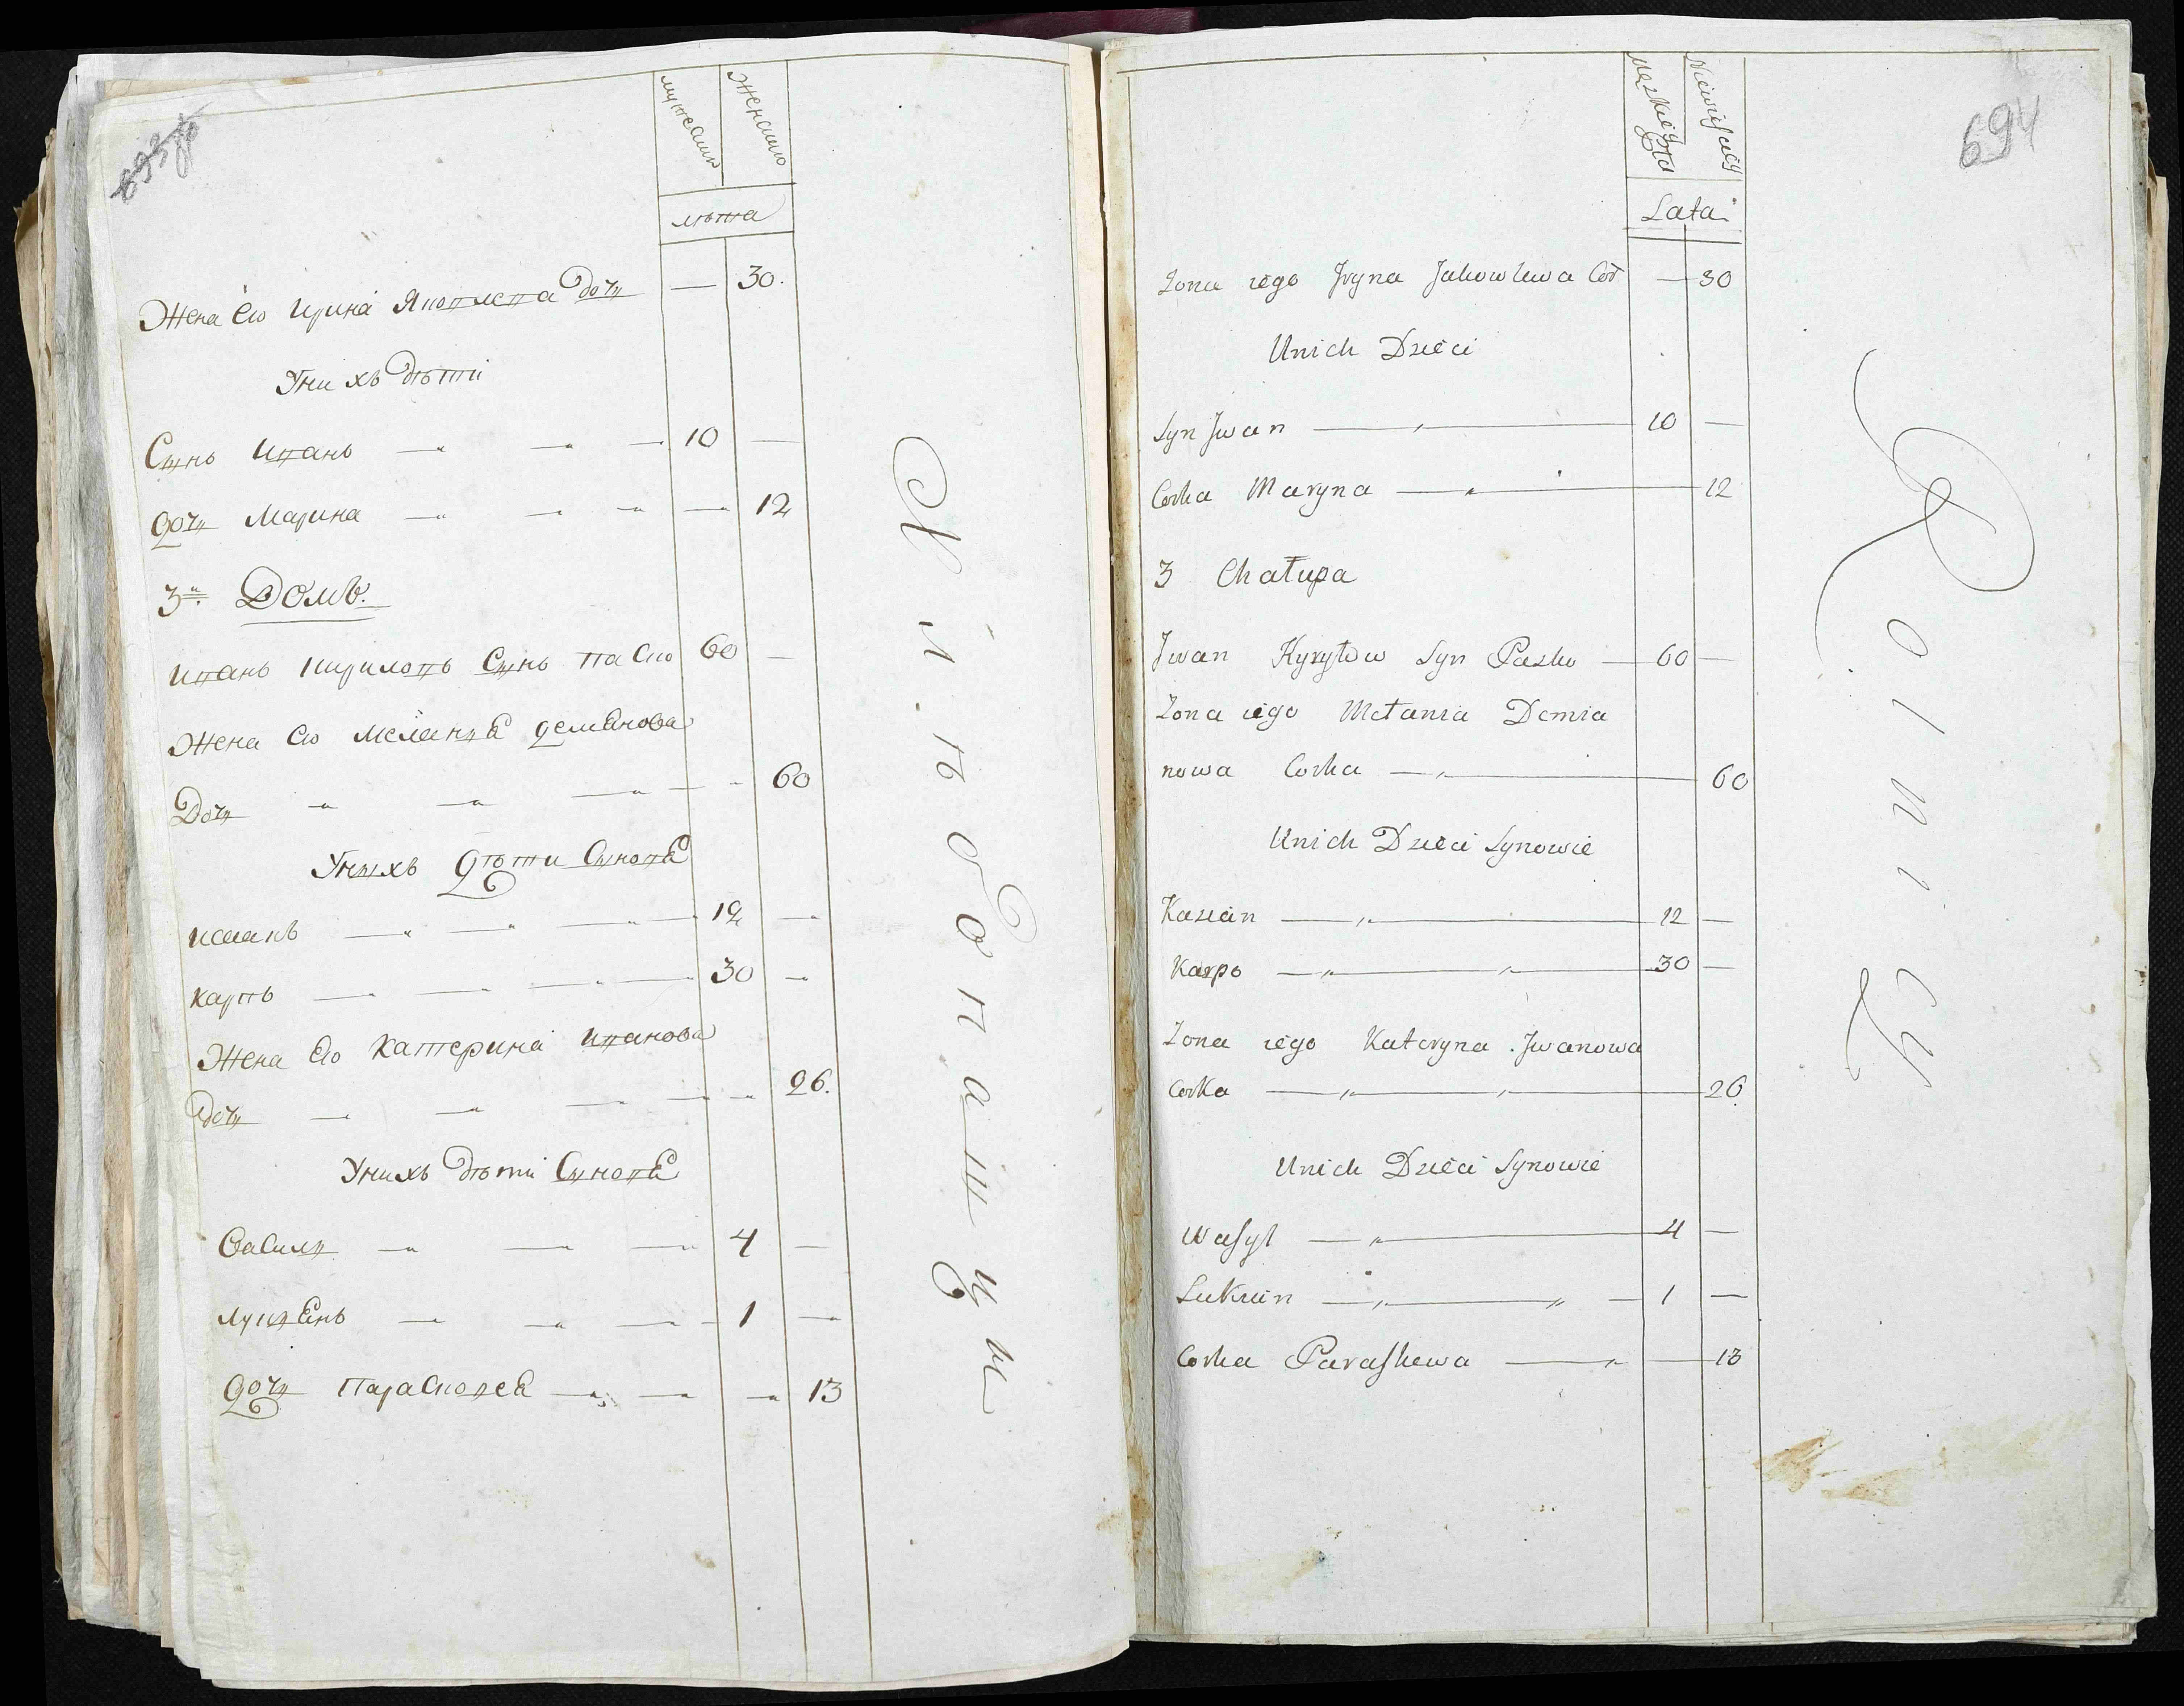 мужеска
женско
лѣта
Жена его Ирина Яковлева дочь — 30.
У нихъ дѣти
Сынъ Иванъ — 10 —
Дочь Марина — 12
3й Домъ.
Иванъ Кириловъ Сынъ Паско 60 —
Жена его Меланья Демьянова
Дочь — 60
У ныхъ дѣти Сыновья
Касианъ — 12 —
Карпъ — 30 —
Жена его Катерина Иванова
Дочь — 26.
У нихъ дѣти Сыновья
Василь — 4 —
Лукьянъ — 1 —
Дочь Парасковея — 13
Хлѣбопашцы
694
Męzkiey Płci
Niewiesciey
Lata
Zona iego Jryna Jakowlewa Cor — 30
Unich Dzieci
Syn Jwan — 10 —
Corka Maryna — 12
3 Chałupa
Jwan Kyryłow Syn Pasko — 60 —
Zona iego Mełania Demia
nowa Corka — 60
Unich Dzieci Synowie
Kasian — 12 —
Karpo — 30 —
Zona iego Kateryna Jwanowa
Corka — 26.
Unich Dzieci Synowie
Wasyl — 4 —
Lukian — 1 —
Corka Paraskewa — 13
Rolnicy